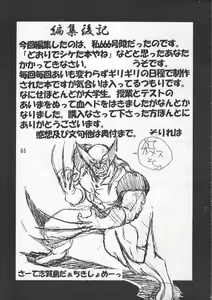 編集後記
今回編集したのは、私666号殿だったのです。
「どおりでシケた本やね」などと思ったあなた
かかってきなさい。　　　うそです。
毎回毎回あいも変わらずギリギリの日程で制作
された本ですが気合いは入ってるつもりです。
なにせほとんどが大学生。授業とテストの
あいまをぬって血ヘドをはきましたがなんとか
なりました。購入なさって下さった方ほんとに
ありがとうございます。
感想及び文句他は奥付まで。　それりは
65
さーて志賀島だぁちきしょめーっ